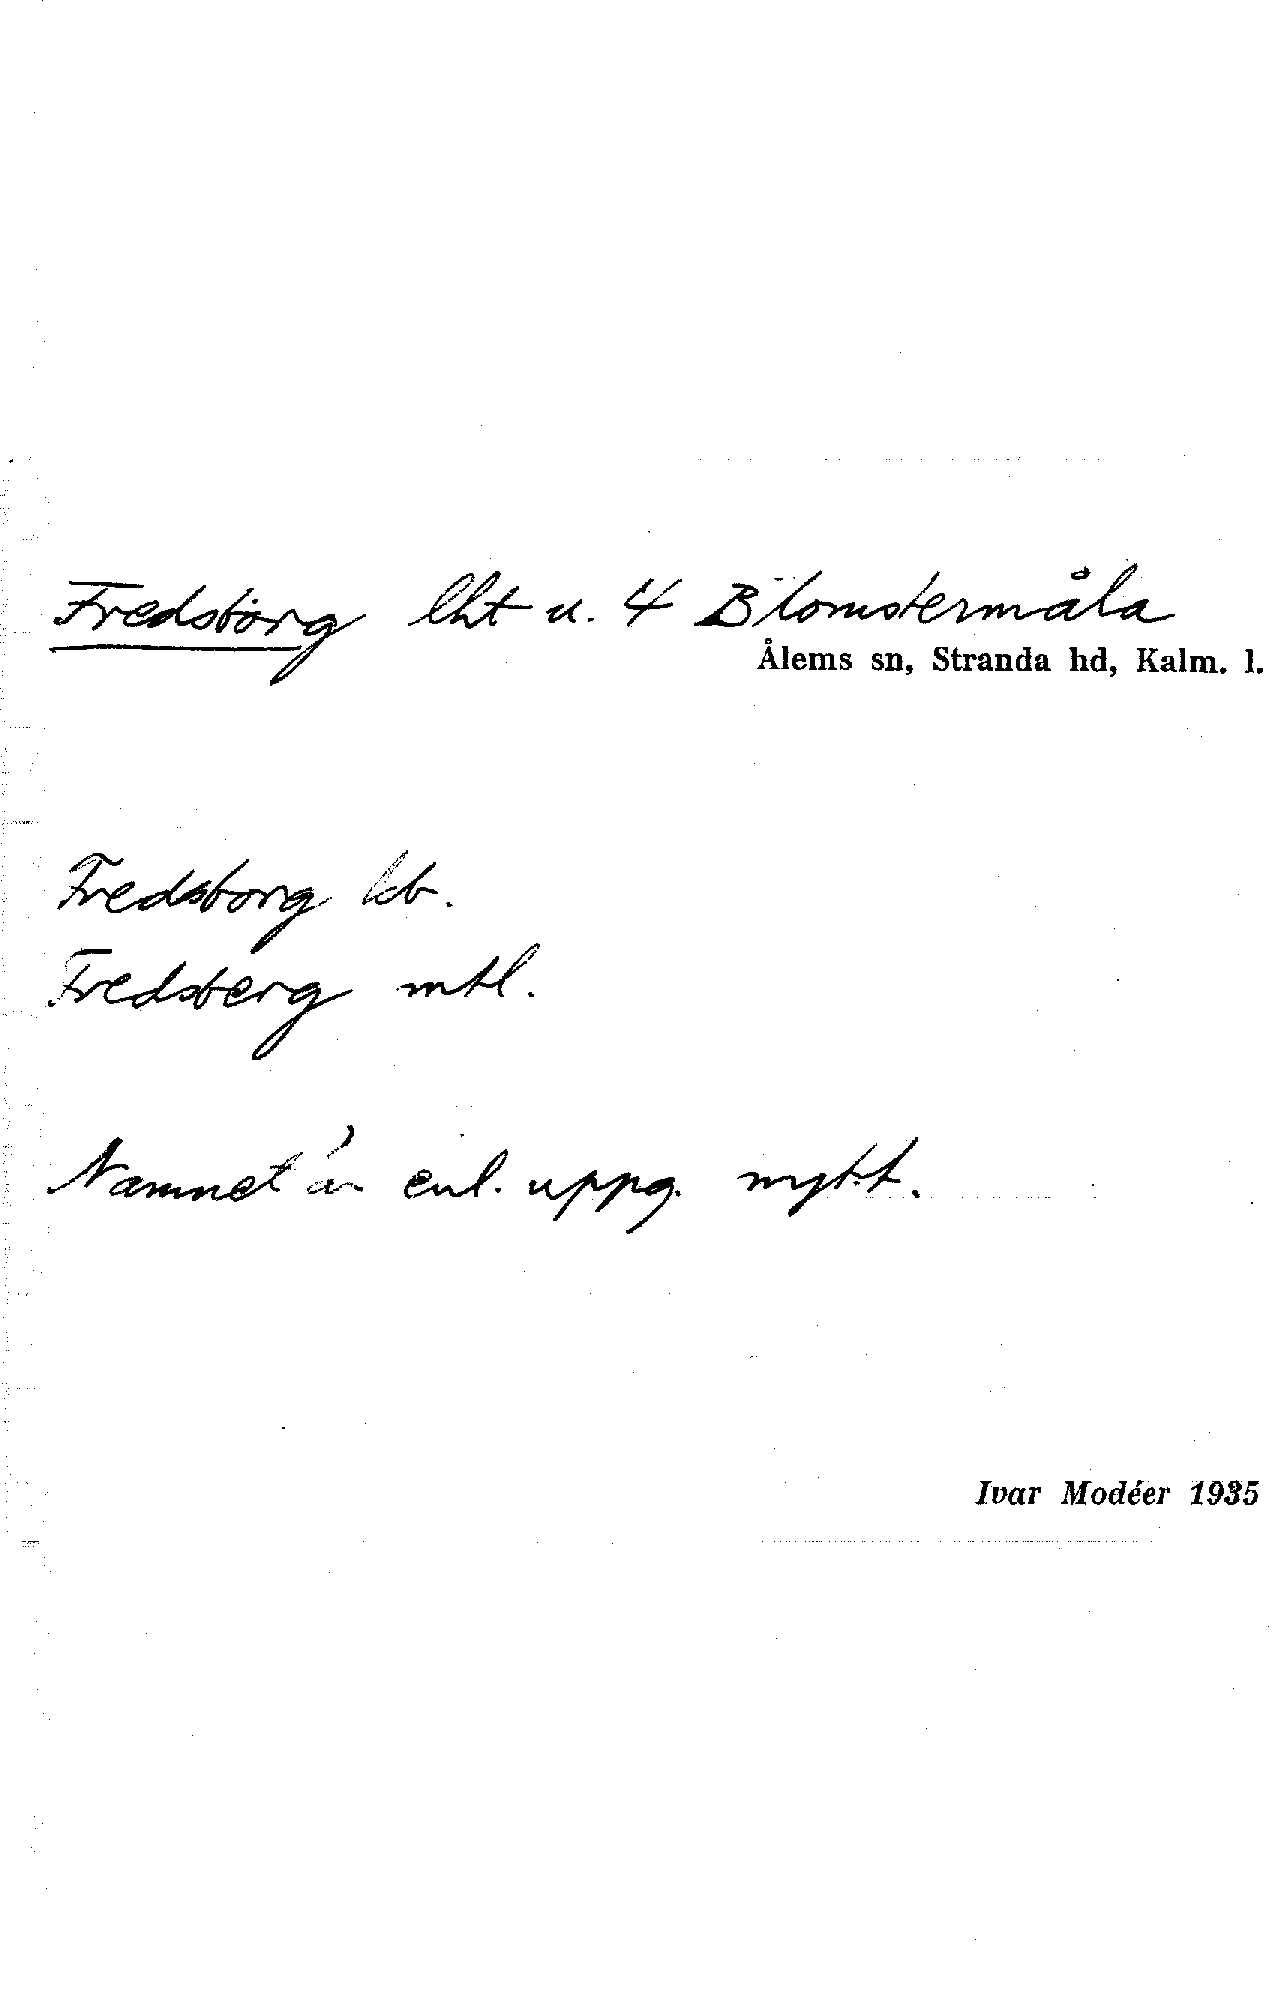 Fredsborg lht u. 4 Blomstermåla
Ålems sn, Stranda hd, Kalm. l.
Fredsborg kb.
Fredsberg mtl.
Namnet är enl. uppg. nytt.
Ivar Modéer 1935